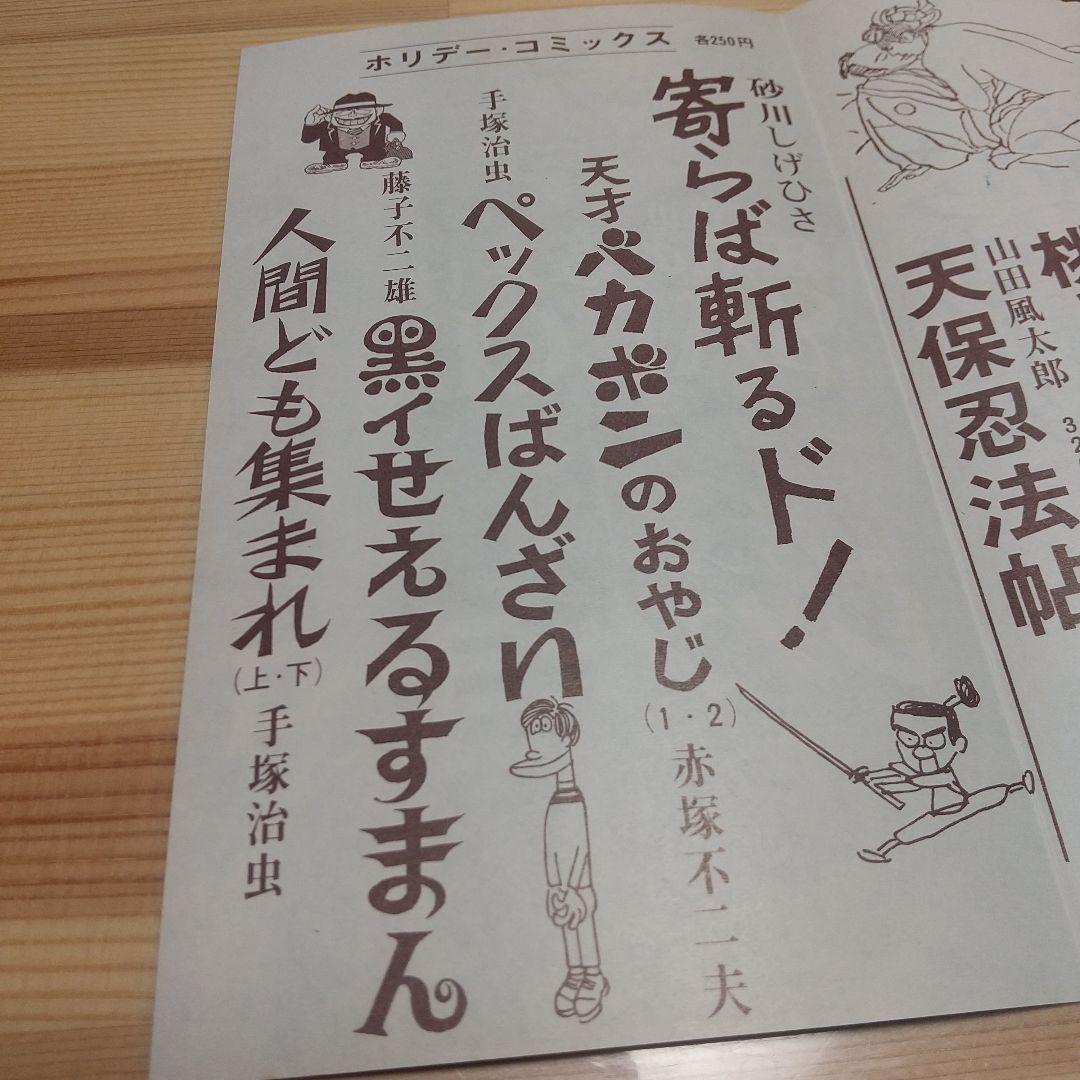 山田風太郎
天保忍法帖
ホリデー・コミックス 各250円
砂川しげひさ
寄らば斬るド!
天才バカボンのおやじ(1・2)赤塚不二夫
手塚治虫
ペックスばんざい
藤子不二雄
黒イせえるすまん
人間ども集まれ(上・下)手塚治虫